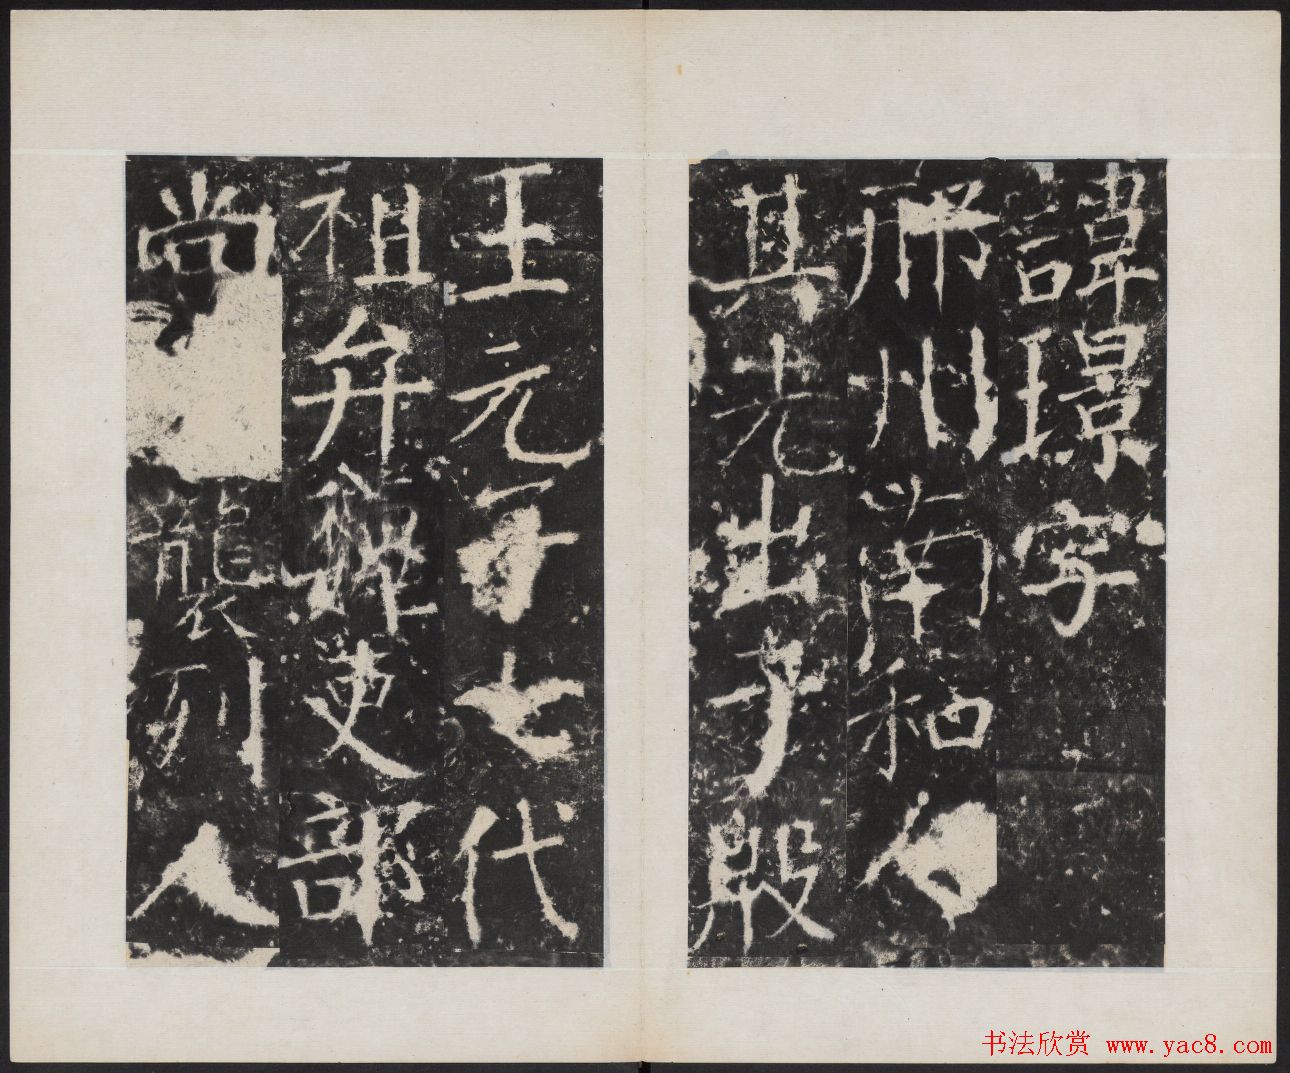 諱璟字
邢州南和人
其先出于殷
王元子七代
祖弁魏吏部
尚襲列人
书法欣赏 www.yac8.com